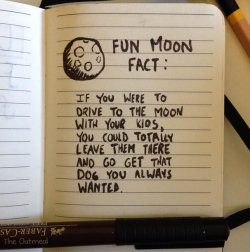 FUN MOON
FACT:
IF YOU WERE TO
DRIVE TO THE MOON
WITH YOUR KIDS,
YOU COULD TOTALLY
LEAVE THEM THERE
AND GO GET THAT
DOG YOU ALWAYS
WANTED.
FABER-CAS
The Oatmeal